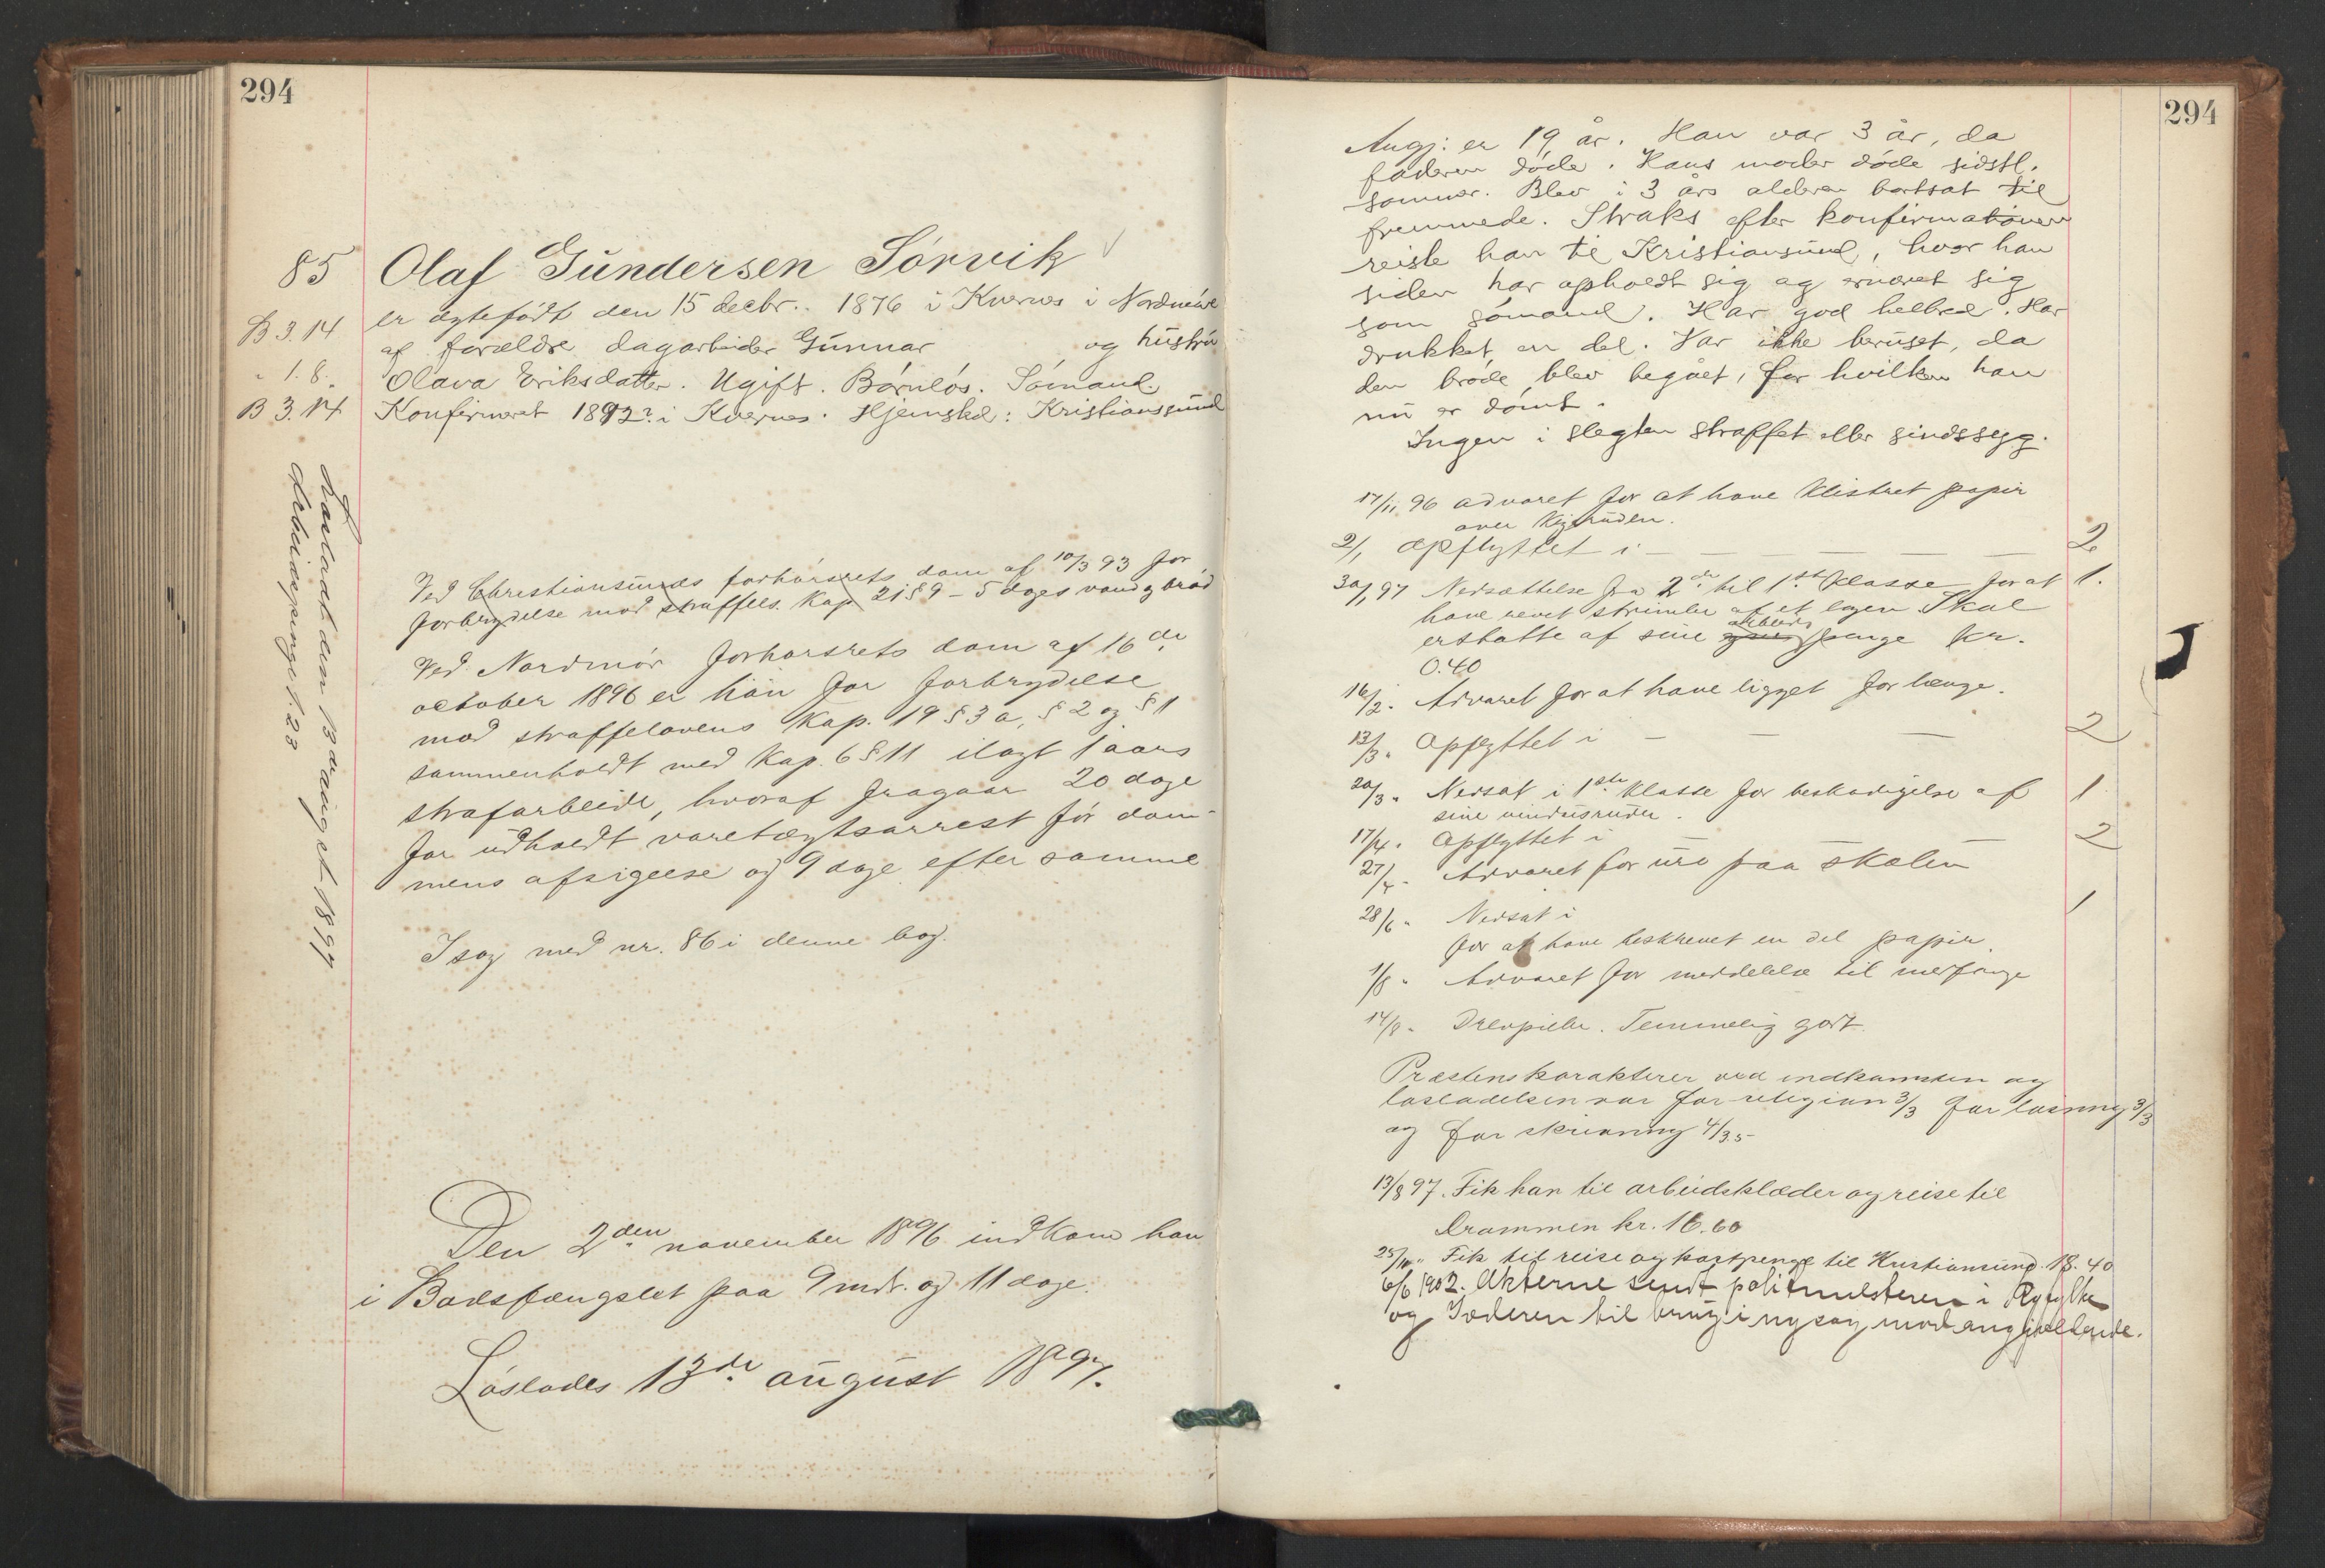 294
85 Olaf Gundersen Sörvik
er ægtefödt den 15 decbr. 1876 i Kvernes i Nordmöre
B 3.14
af forældre dagarbeider Gunnar og hustru
" 1.8. Olava Eriksdatter. Ugift. Börnlös. Sömand.
B 3.14 Konfirmeret 1892? i Kvernes. Hjemsted: Kristianssund
Lösladt den 13de august 1897
Arbeidspenge 1.23
Ved Christiansunds forhörsrets dom af 10/3 93 for
forbrydelse mod straffels. Kap 21 § 9 – 5 dages vand og bröd
Ved Nordmör forhörsrets dom af 16de
october 1896 er han for forbrydelse
mod straffelovens Kap. 19 § 3 a, § 2 og § 1
sammenholdt med Kap. 6 § 11 ilagt 1 aars
strafarbeide, hvoraf fragaar 20 dage
for udholdt varetægtsarrest för dom-
mens afsigelse og 9 dage efter samme
I sag med nr. 86 i denne bog.
Den 2den november 1896 indkom han
i Bodsfængslet paa 9 mdr. og 11 dage.
Löslades 13de august 1897.
294
Angj: er 19 år. Han var 3 år, da
faderen döde. Hans moder döde sidstl.
sommer. Blev i 3 års alderen bortsat til
fremmede. Straks efter konfirmationen
reiste han til Kristiansund, hvor han
siden har opholdt sig og ernæret sig
som sömand. Har god helbred. Har
drukket en del. Var ikke beruset, da
den bröde blev begået, for hvilken han
nu er dömt.
Ingen i slegten straffet eller sindssyg.
17/11 96 advaret for at have klistret papir
over Kigruden.
2/1 opflyttet i – – – – – 2
30/1 97 Nedsættelse fra 2den til 1ste Klasse for at 1.
have revet strimler af et lagen Skal
erstatte af sine arbeids penge kr.
0.40
16/2 " Advaret for at have ligget for længe.
13/3 " Opflyttet i – – – 2
20/3 " Nedsat i 1ste klasse for beskadigelse af 1
sine vinduesruder.
17/4 " Opflyttet i – – 2
27/4 " Advaret for uro paa skolen
28/6 " Nedsat i 1
for at have beskrevet en del papir.
1/8 " Advaret for meddelelse til medfange
14/8 " Drevpiller. Temmelig godt.
Præstens karakterer ved indkomsten og
lösladelsen var for religion 3/3 for læsning 3/3
og for skrivning 4/3.5
13/8 97. Fik han til arbeidsklæder og reise til
Drammen kr. 16.60
25/10 " Fik til reise og kostpenge til Kristiansund. 18.40
6/6 1902. Akterne sendt politimesteren i Ryfylke
og Jæderen til brug i ny sag mod angjældende.